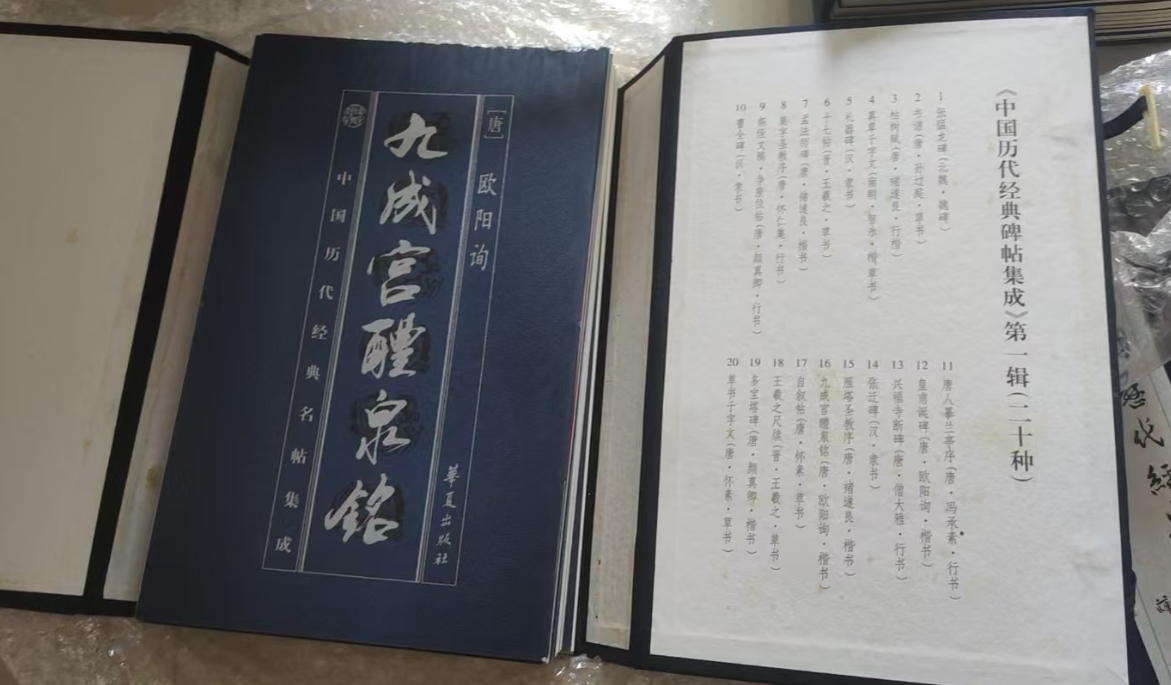 [唐] 欧阳询
九成宫醴泉銘
中国历代经典名帖集成
華夏出版社
《中国历代经典碑帖集成》第一辑(二十种)
1 张猛龙碑(北魏·魏碑)
2 书谱(唐·孙过庭·草书)
3 枯树赋(唐·褚遂良·行楷)
4 真草千字文(南朝·智永·楷草书)
5 礼器碑(汉·隶书)
6 十七帖(晋·王羲之·草书)
7 孟法师碑(唐·褚遂良·楷书)
8 集字圣教序(唐·怀仁集·行书)
9 祭侄文稿·争座位帖(唐·颜真卿·行书)
10 曹全碑(汉·隶书)
11 唐人摹兰亭序(唐·冯承素·行书)
12 皇甫诞碑(唐·欧阳询·楷书)
13 兴福寺断碑(唐·僧大雅·行书)
14 张迁碑(汉·隶书)
15 雁塔圣教序(唐·褚遂良·楷书)
16 九成宫醴泉铭(唐·欧阳询·楷书)
17 自叙帖(唐·怀素·草书)
18 王羲之尺牍(晋·王羲之·草书)
19 多宝塔碑(唐·颜真卿·楷书)
20 草书千字文(唐·怀素·草书)
历代经